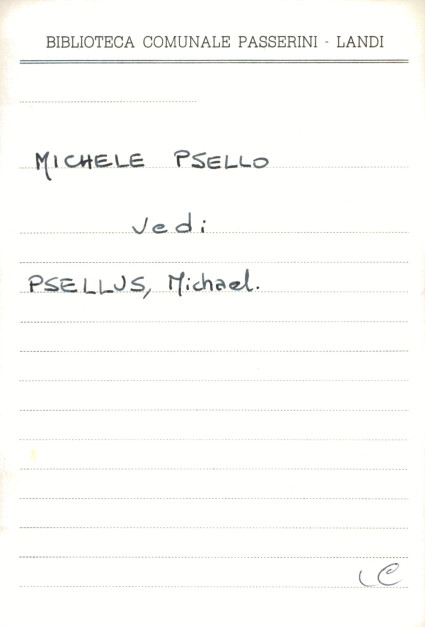 BIBLIOTECA COMUNALE PASSERINI - LANDI
MICHELE PSELLO
Vedi
PSELLUS, Michael.